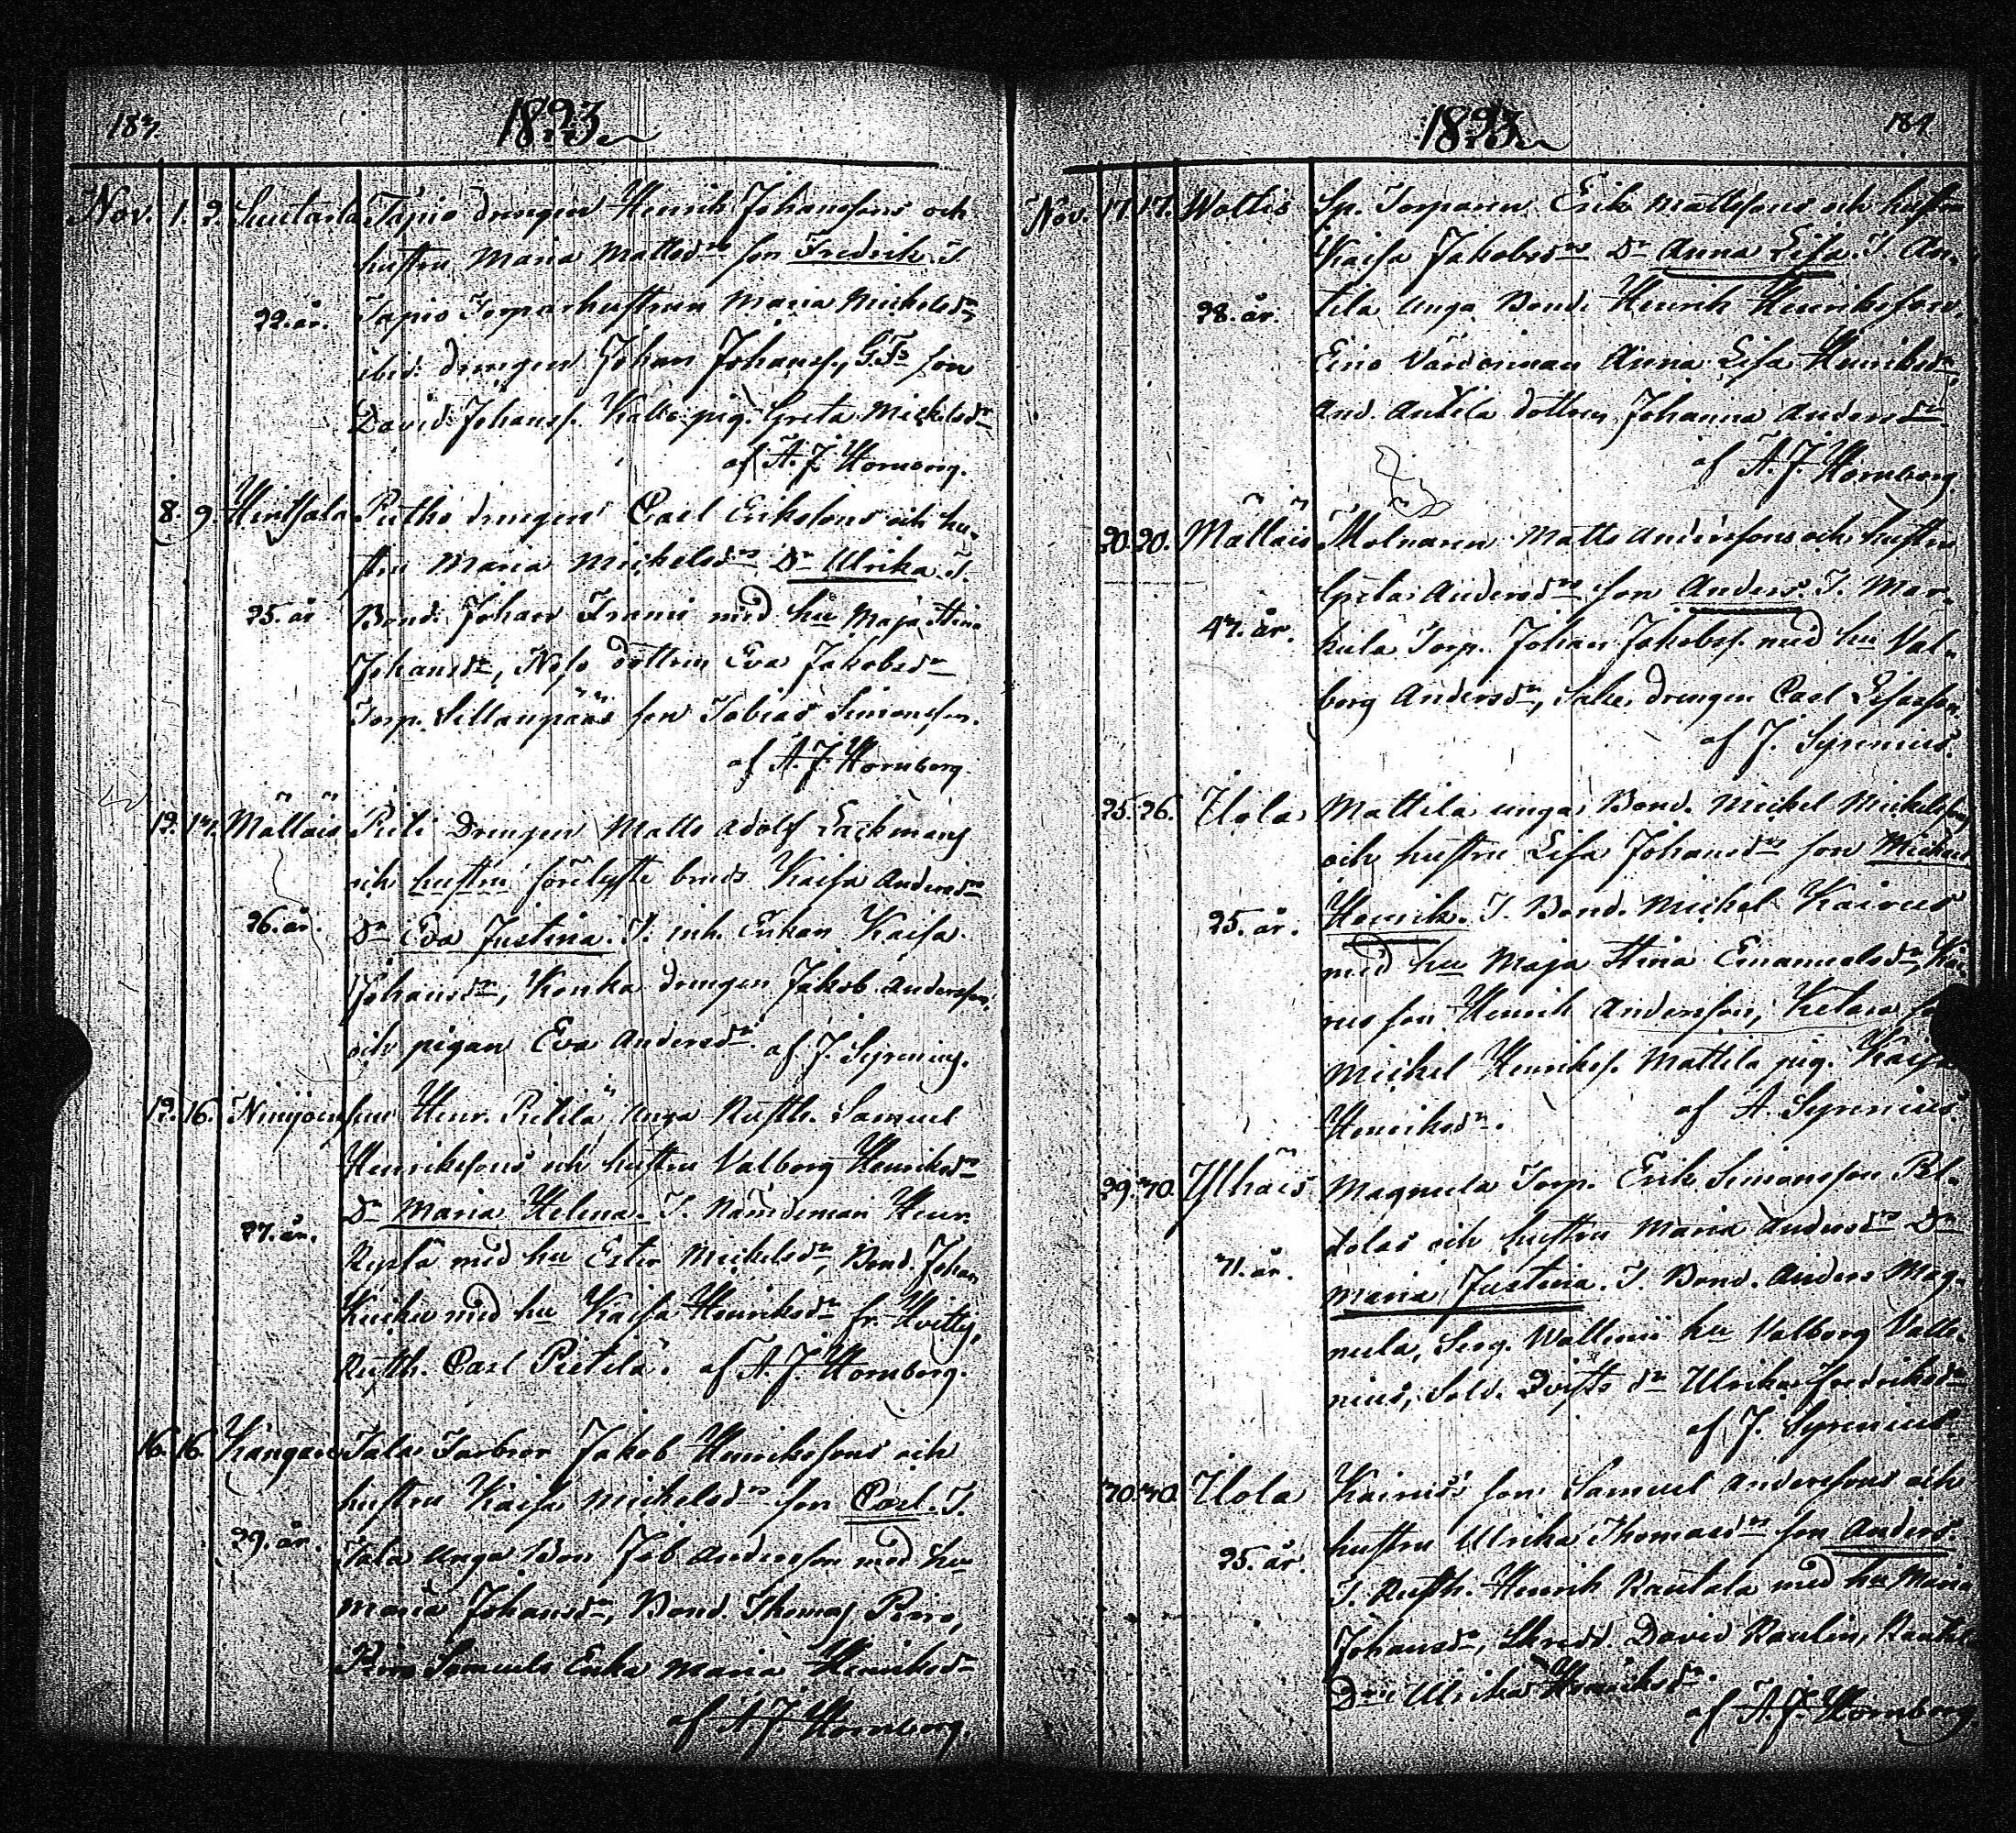 183.
1823.
Nov. 1. 2. Suutarla Tapio drengen Henrik Johanssons och
hustru Maria Mattsdrs son Fredrik. T.
22. år. Tapio Torparhustrun Maria Michelsdr,
ibid. drengen Johan Johanss.,
David Johanss. pig. Greta Michelsdr
af A. J. Hornborg.
8. 9. Hintsala drengen Carl Eriksons och hu-
stru Maria Michelsdrs Dr Ulrika. T.
25. år Bond. Johan med hu Maja Stina
Johansdr, dottren Eva Jakobsdr
Torp. Sillanpääs son Tobias Simonsson.
af A. J. Hornborg.
12. 13. Mälläis Drengen Matts Adolf Lackmans
och hustru förelyfte bruds Kaisa Andersdrs
26. år. Dr Eva Justina. T. inh. Enkan Kaisa
Johansdr, Konka drengen Jakob Andersson
och pigan Eva Andersdr. af J. Syrenius.
12. 16. Henr. Pietilä unga Rusth. Samuel
Henrikssons och hustru Valborg Henriksdrs
Dr Maria Helena. T. Nämdeman Henr.
27. år. med hu Ester Michelsdr, Bond. Johan
med hu Kaisa Henriksdr fr.
Rusth. Carl Pietilä. af A. J. Hornborg.
16. 16. Kangare Tala Jakob Henrikssons och
hustru Kaisa Michelsdrs son Carl. T.
29. år. Tala unga Bon Job Andersson med hu
Maria Johansdr, Bond. Thomas Piro,
Piro Samuels Enka Maria Henriksdr
af A J Hornborg.
1823.
184
Nov. 17. 17. Woltis Sp. Torparen Erik Mattssons och hustru
Kaisa Jakobsdrs Dr Anna Lisa. T. An-
28. år. tila unga Bond. Henrik Henriksson,
Eino Värdinnan Anna Lisa Henriksdr,
And. Antila dottren Johanna Andersdr
af A. J. Hornborg.
20. 20. Mälläis Molnaren Matts Anderssons och hustru
Greta Andersdrs son Anders. T. Mar-
47. år. kula Torp. Johan Jakobss. med hu Val-
borg Andersdr, drengen Carl
af J. Syrenius.
25. 26. Uola Mattila unga Bond. Michel Michelssons
och hustru Lisa Johansdrs son Michel
25. år. Henrik. T. Bond. Michel Kairus
med hu Maja Stina Emanuelsdr, Kai-
rus son Henrik Andersson,
Michel Henrikss. Mattila pig. Kaisa
Henriksdr. af A. Syrenius.
29. 30. Ylhäis Magnula Torp. Erik Simonsson
och hustru Maria Andersdrs Dr
31. år. Maria Justina. T. Bond. Anders Mag-
nula, Serg. Wallenii hu Valborg Valle-
nius, Sold. Qvists dr Ulrika Fredriksdr
af J. Syrenius.
30. 30. Uola Kairus son Samuel Anderssons och
hustru Ulrika Thomasdrs son Anders.
25. år. T. Rusth. Henrik Rautala med hu Maria
Johansdr, Skredd. David Raulin,
Ulrika Henriksdr.
af A. J. Hornborg